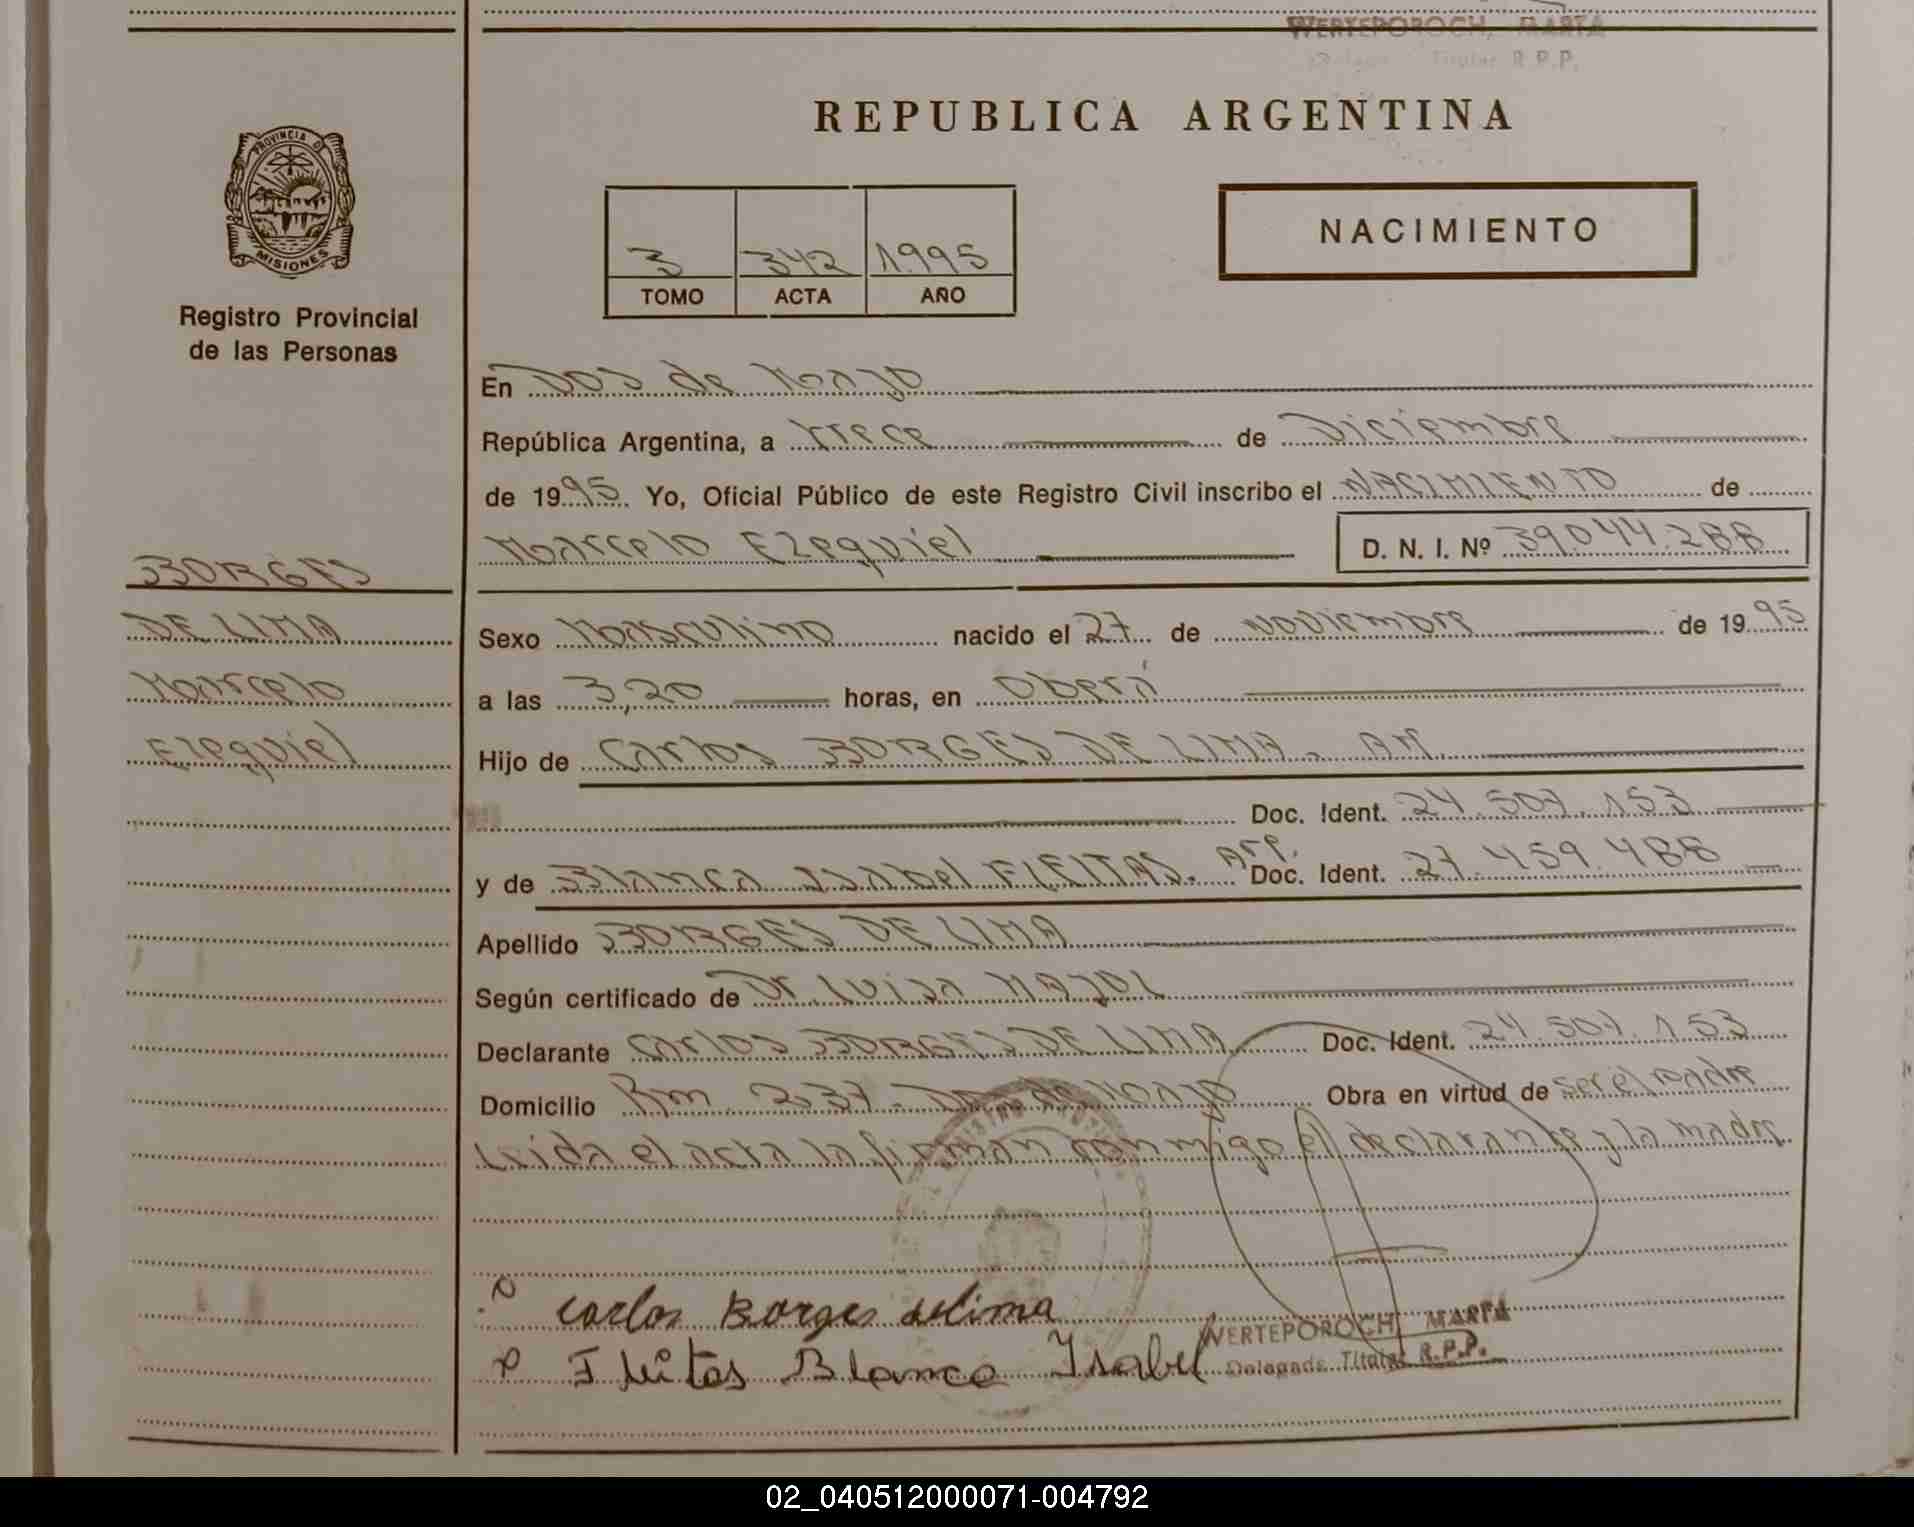 WERTEPOROCH, MARTA
Titular R.P.P.
REPUBLICA ARGENTINA
PROVINCIA D
MISIONES
Registro Provincial
de las Personas
3 342 1.995
TOMO ACTA AÑO
NACIMIENTO
En Dos de Mayo
República Argentina, a trece de Diciembre
de 1995. Yo, Oficial Público de este Registro Civil inscribo el NACIMIENTO de
Marcelo Ezequiel D. N. I. Nº 39.044.288
BORGES
DE LIMA
Marcelo
Ezequiel
Sexo Masculino nacido el 27 de Noviembre de 1995
a las 3,20 horas, en Oberá
Hijo de Carlos BORGES DE LIMA. Ar.
Doc. Ident. 24.507.153
y de Blanca Isabel FLEITAS. Arg. Doc. Ident. 27.459.488
Apellido BORGES DE LIMA
Según certificado de Dr. Luisa MAJUL
Declarante Carlos BORGES DE LIMA Doc. Ident. 24.507.153
Domicilio Km. 237 - Dos de Mayo Obra en virtud de ser el padre
Leida el acta la firman conmigo el declarante y la madre.
Carlos Borges delima
Fleitas Blanca Isabel
WERTEPOROCH, MARTA
Delegada Titular R.P.P.
02_040512000071-004792